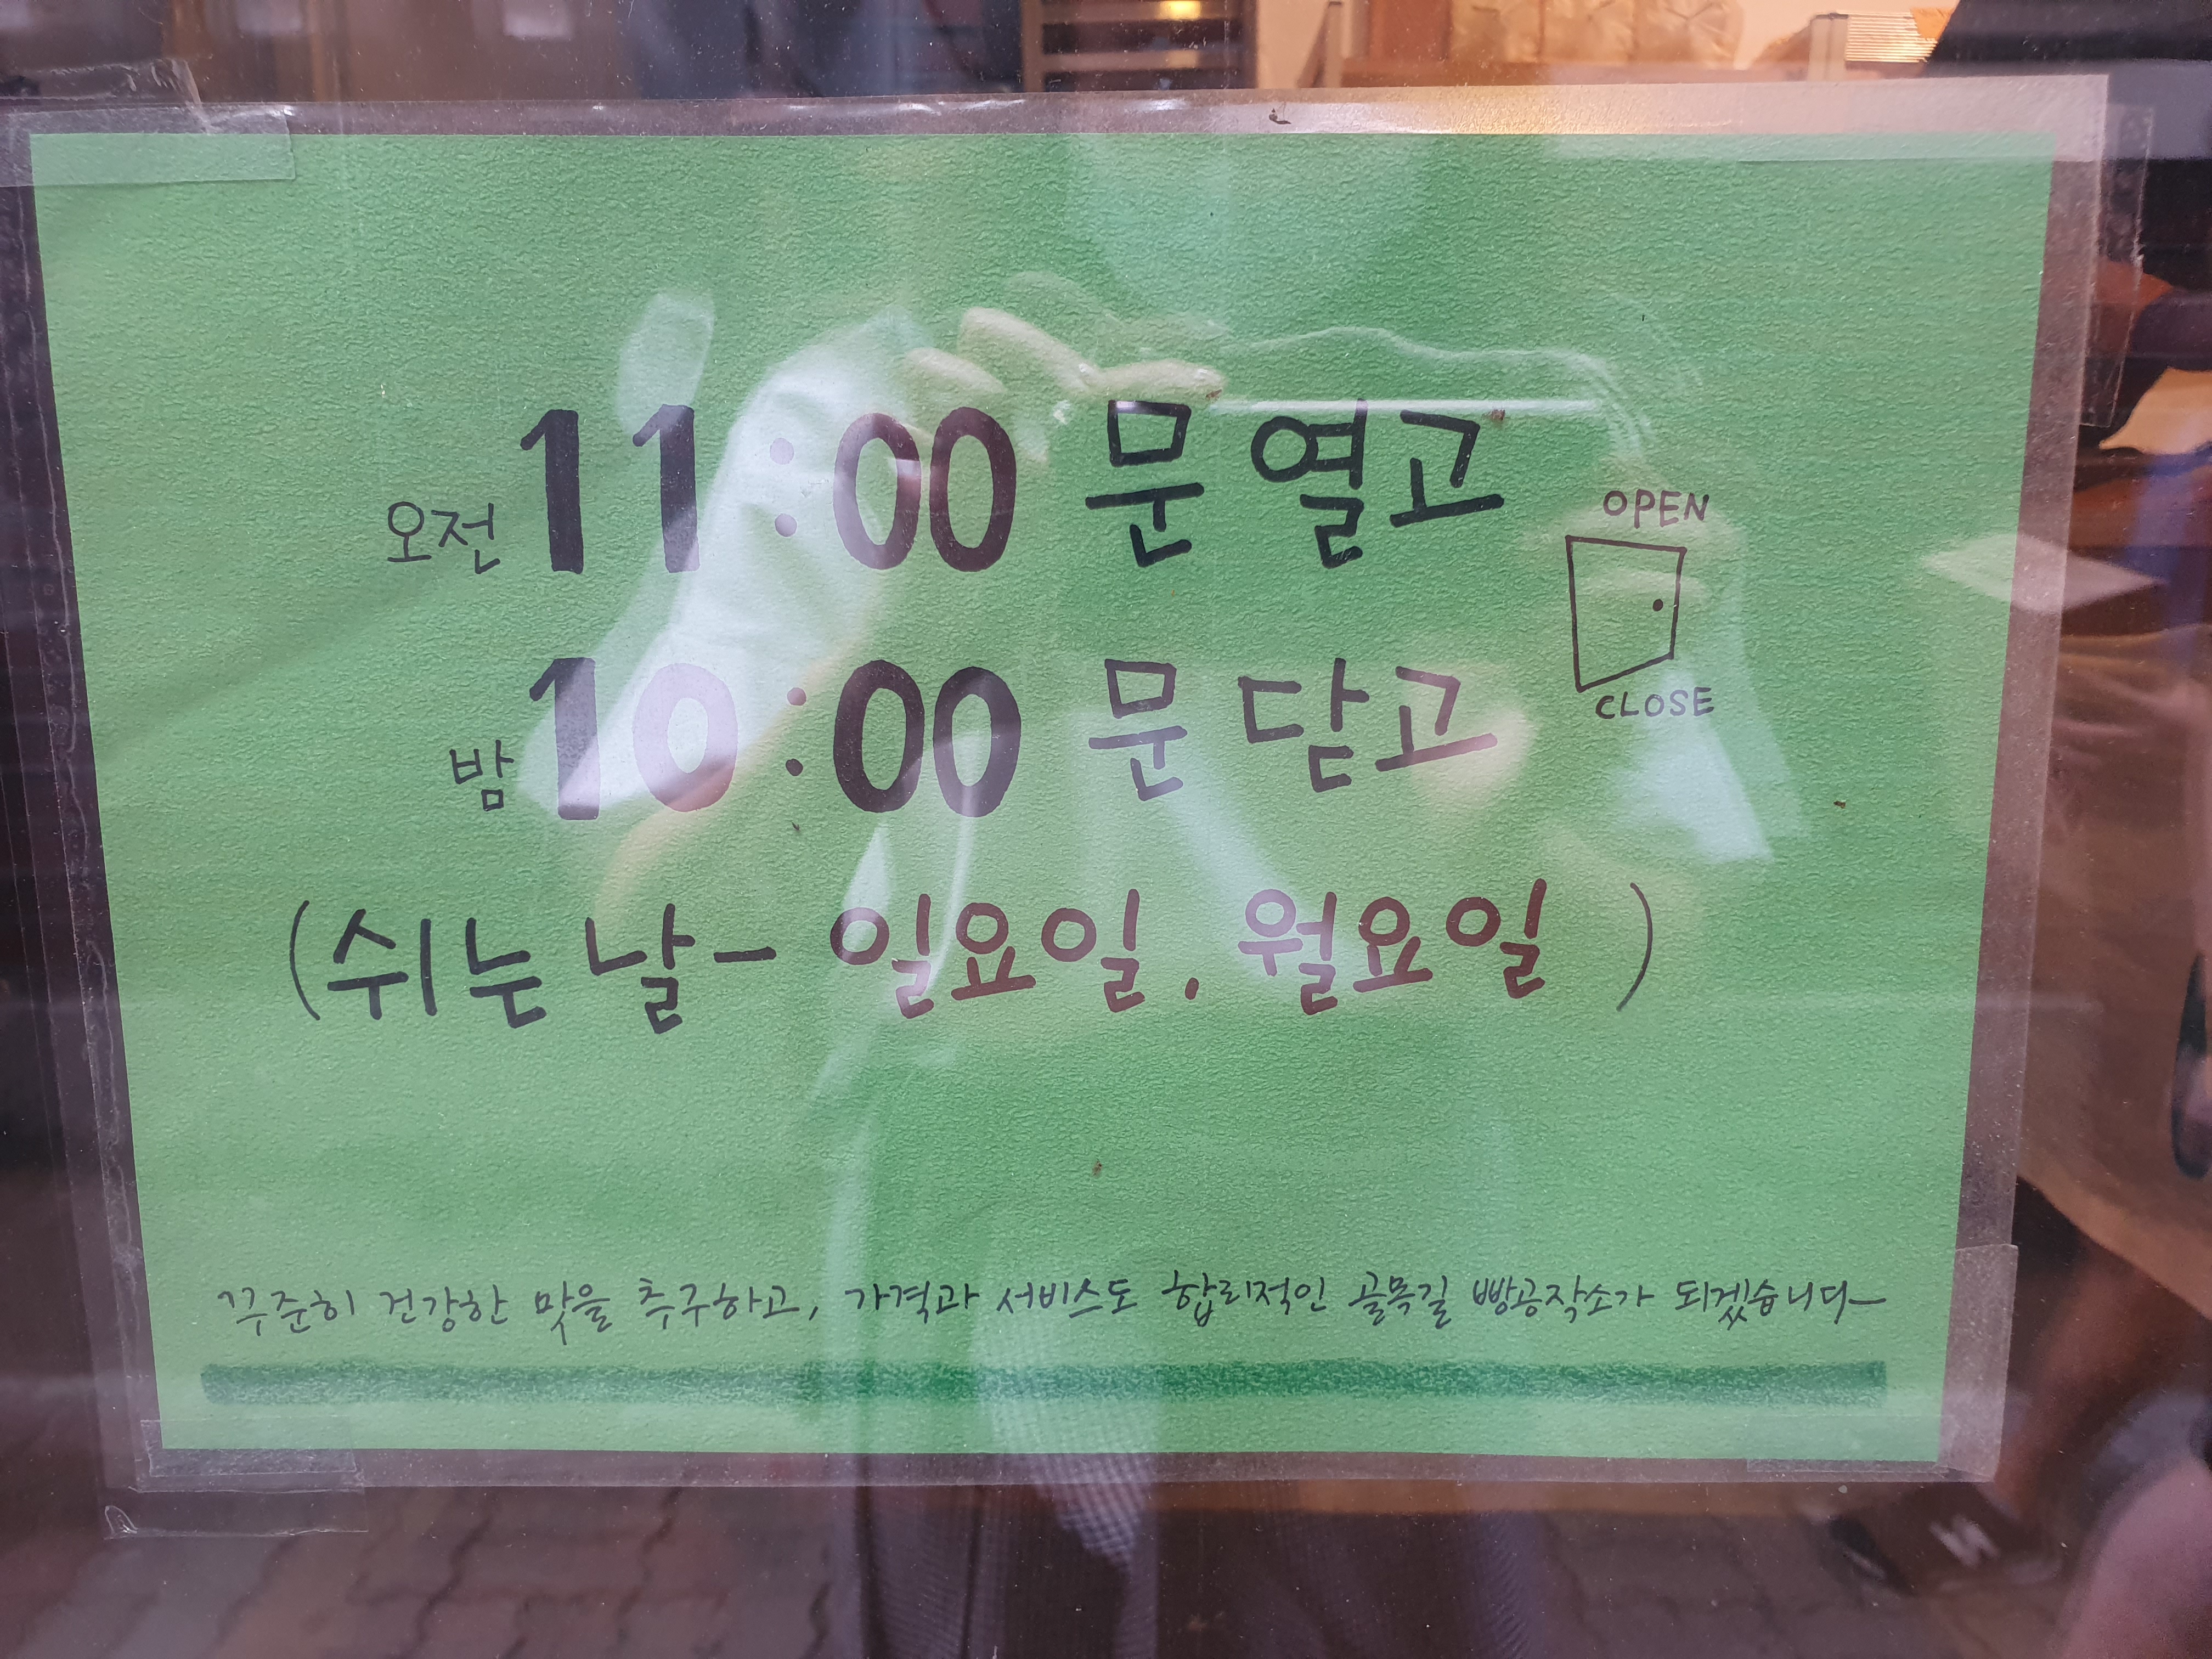 오전 11:00 문 열고
OPEN
밤 10:00 문 닫고
CLOSE
(쉬는 날 - 일요일, 월요일 )
꾸준히 건강한 맛을 추구하고, 가격과 서비스도 합리적인 골목길 빵공작소가 되겠습니다~